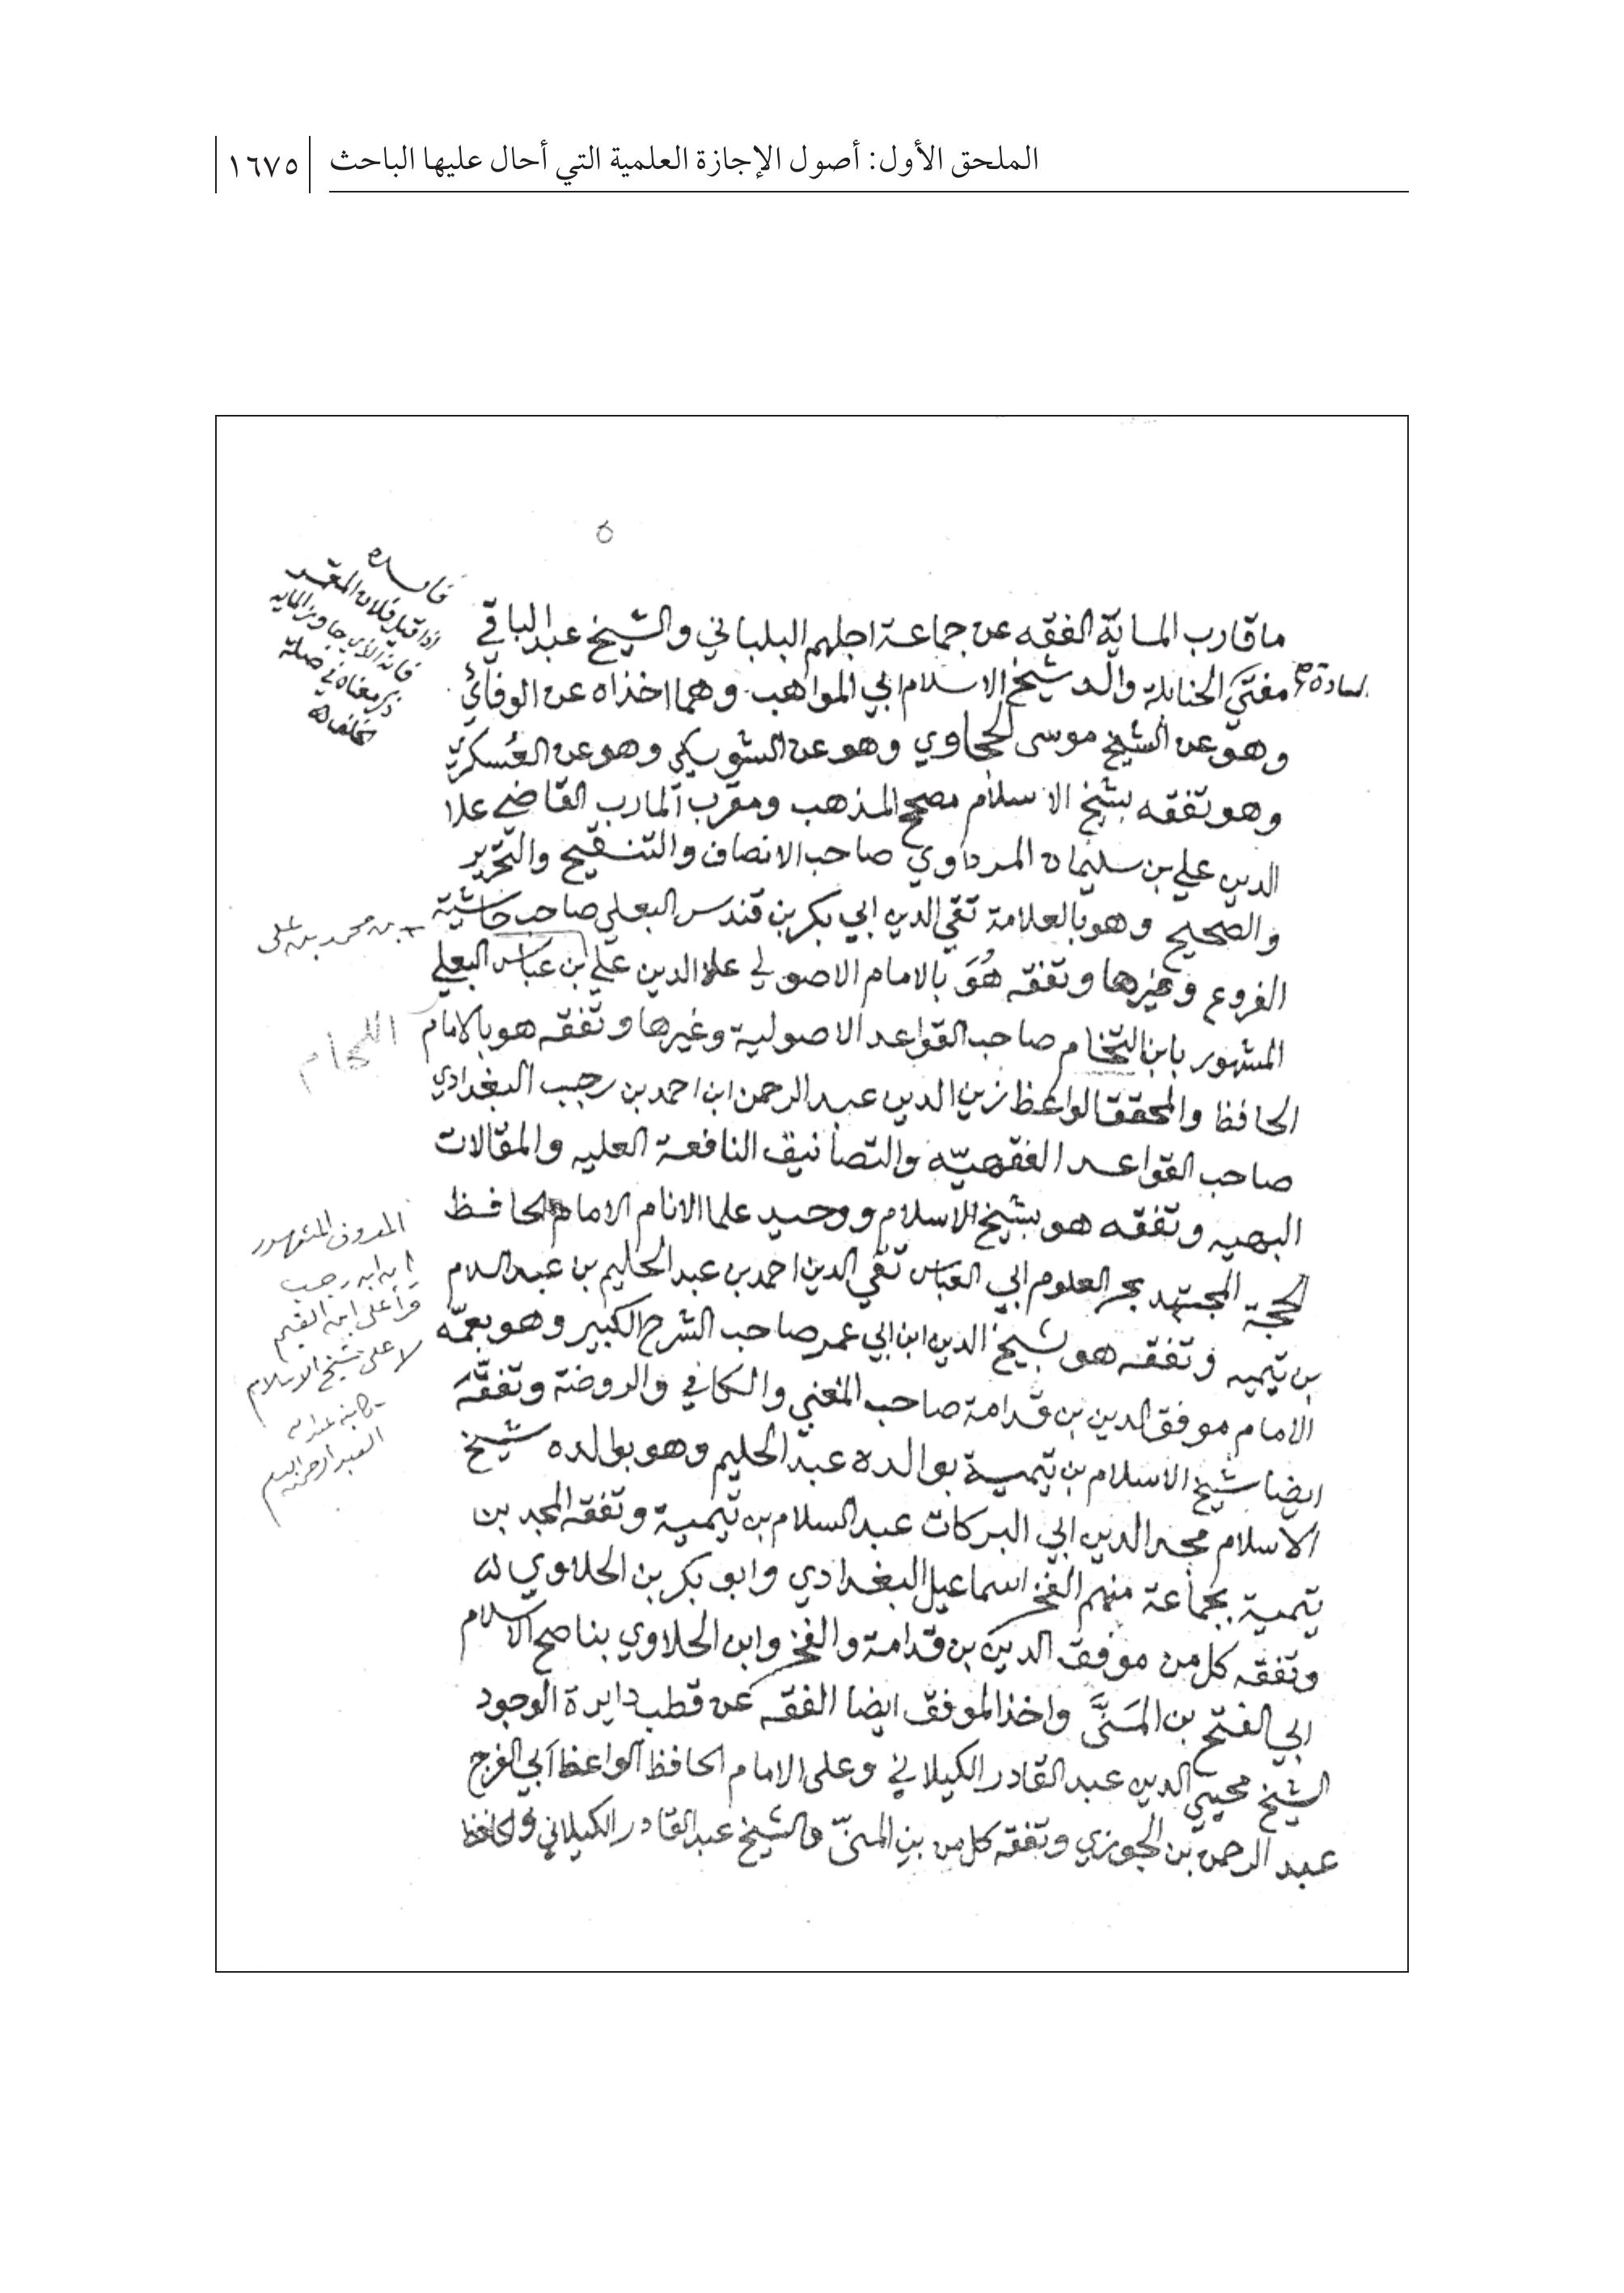 الملحق الأول: أصول الإجازة العلمية التي أحال عليها الباحث
١٦٧٥
٥
فايده
اذا قيل فلان المعمر
فانه الذي جاوز المايه
ذكر معناه في
ما قارب الماية الفقه عن جماعة اجلهم البلباني والشيخ عبد الباقي
السادة صح
مفتي الحنابلة والد شيخ الاسلام ابي المواهب وهما اخذاه عن الوفائي
وهو عن الشيخ موسى الحجاوي وهو عن الشويكي وهو عن العُسكري
وهو تفقه بشيخ الاسلام مصحح المذهب ومقرب المارب القاضي علا
الدين علي بن سليمان المرداوي صاحب الانصاف والتنقيح والتحرير
والصحيح وهو بالعلامة تقي الدين ابي بكر بن قندس البعلي صاحب حاشية
بن محمد بن على
الفروع وغيرها وتفقه هُوَ بالامام الاصولي علا الدين علي بن عباس البعلي
المشهور بابن التخام صاحب القواعد الاصولية وغيرها وتفقه هو بالامام
اللحام
الحافظ والمحقق الواعظ زين الدين عبد الرحمن ابن احمد بن رجب البغدادي
صاحب القواعد الفقهيّه والتصانيف النافعة العليه والمقالات
البهيه وتفقه هو بشيخ الاسلام ووحيد علما الانام الامام الحافظ
الحجة المجتهد بحر العلوم ابي العباس تقي الدين احمد بن عبد الحليم بن عبد السلام
المعروف المشهور
ان ابن رجب
قرأ على ابن القيم
لا على شيخ الاسلام
بن تيميه وتفقه هو بشيخ الدين ابن ابي عمر صاحب الشرح الكبير وهو بعمّه
الامام موفق الدين بن قدامة صاحب المغني والكافي والروضة وتفقَّهَ
ايضا شيخ الاسلام بن تيمية بوالده عبد الحليم وهو بوالده شيخ
الاسلام مجد الدين ابي البركات عبد السلام بن تيمية وتفقه المجد بن
تيمية بجماعة منهم الفخر اسماعيل البغدادي وابو بكر بن الحلاوي
وتفقه كل من موفق الدين بن قدامة والفخر وابن الحلاوي بناصح الاسلام
ابي الفتح بن المَنيَّ واخذ الموفق ايضا الفقه عن قطب دايرة الوجود
الشيخ محيي الدين عبد القادر الكيلاني وعلى الامام الحافظ الواعظ ابي الفرج
عبد الرحمن بن الجوزي وتفقه كل من بن المنيّ والشيخ عبد القادر الكيلاني والحافظ